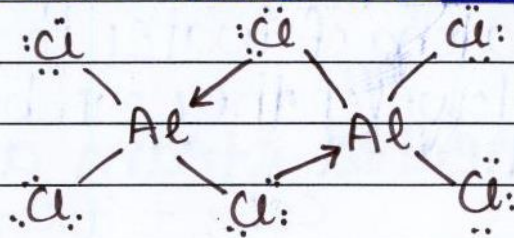 :Cl: :Cl: :Cl:
Al Al
:Cl: :Cl: :Cl: